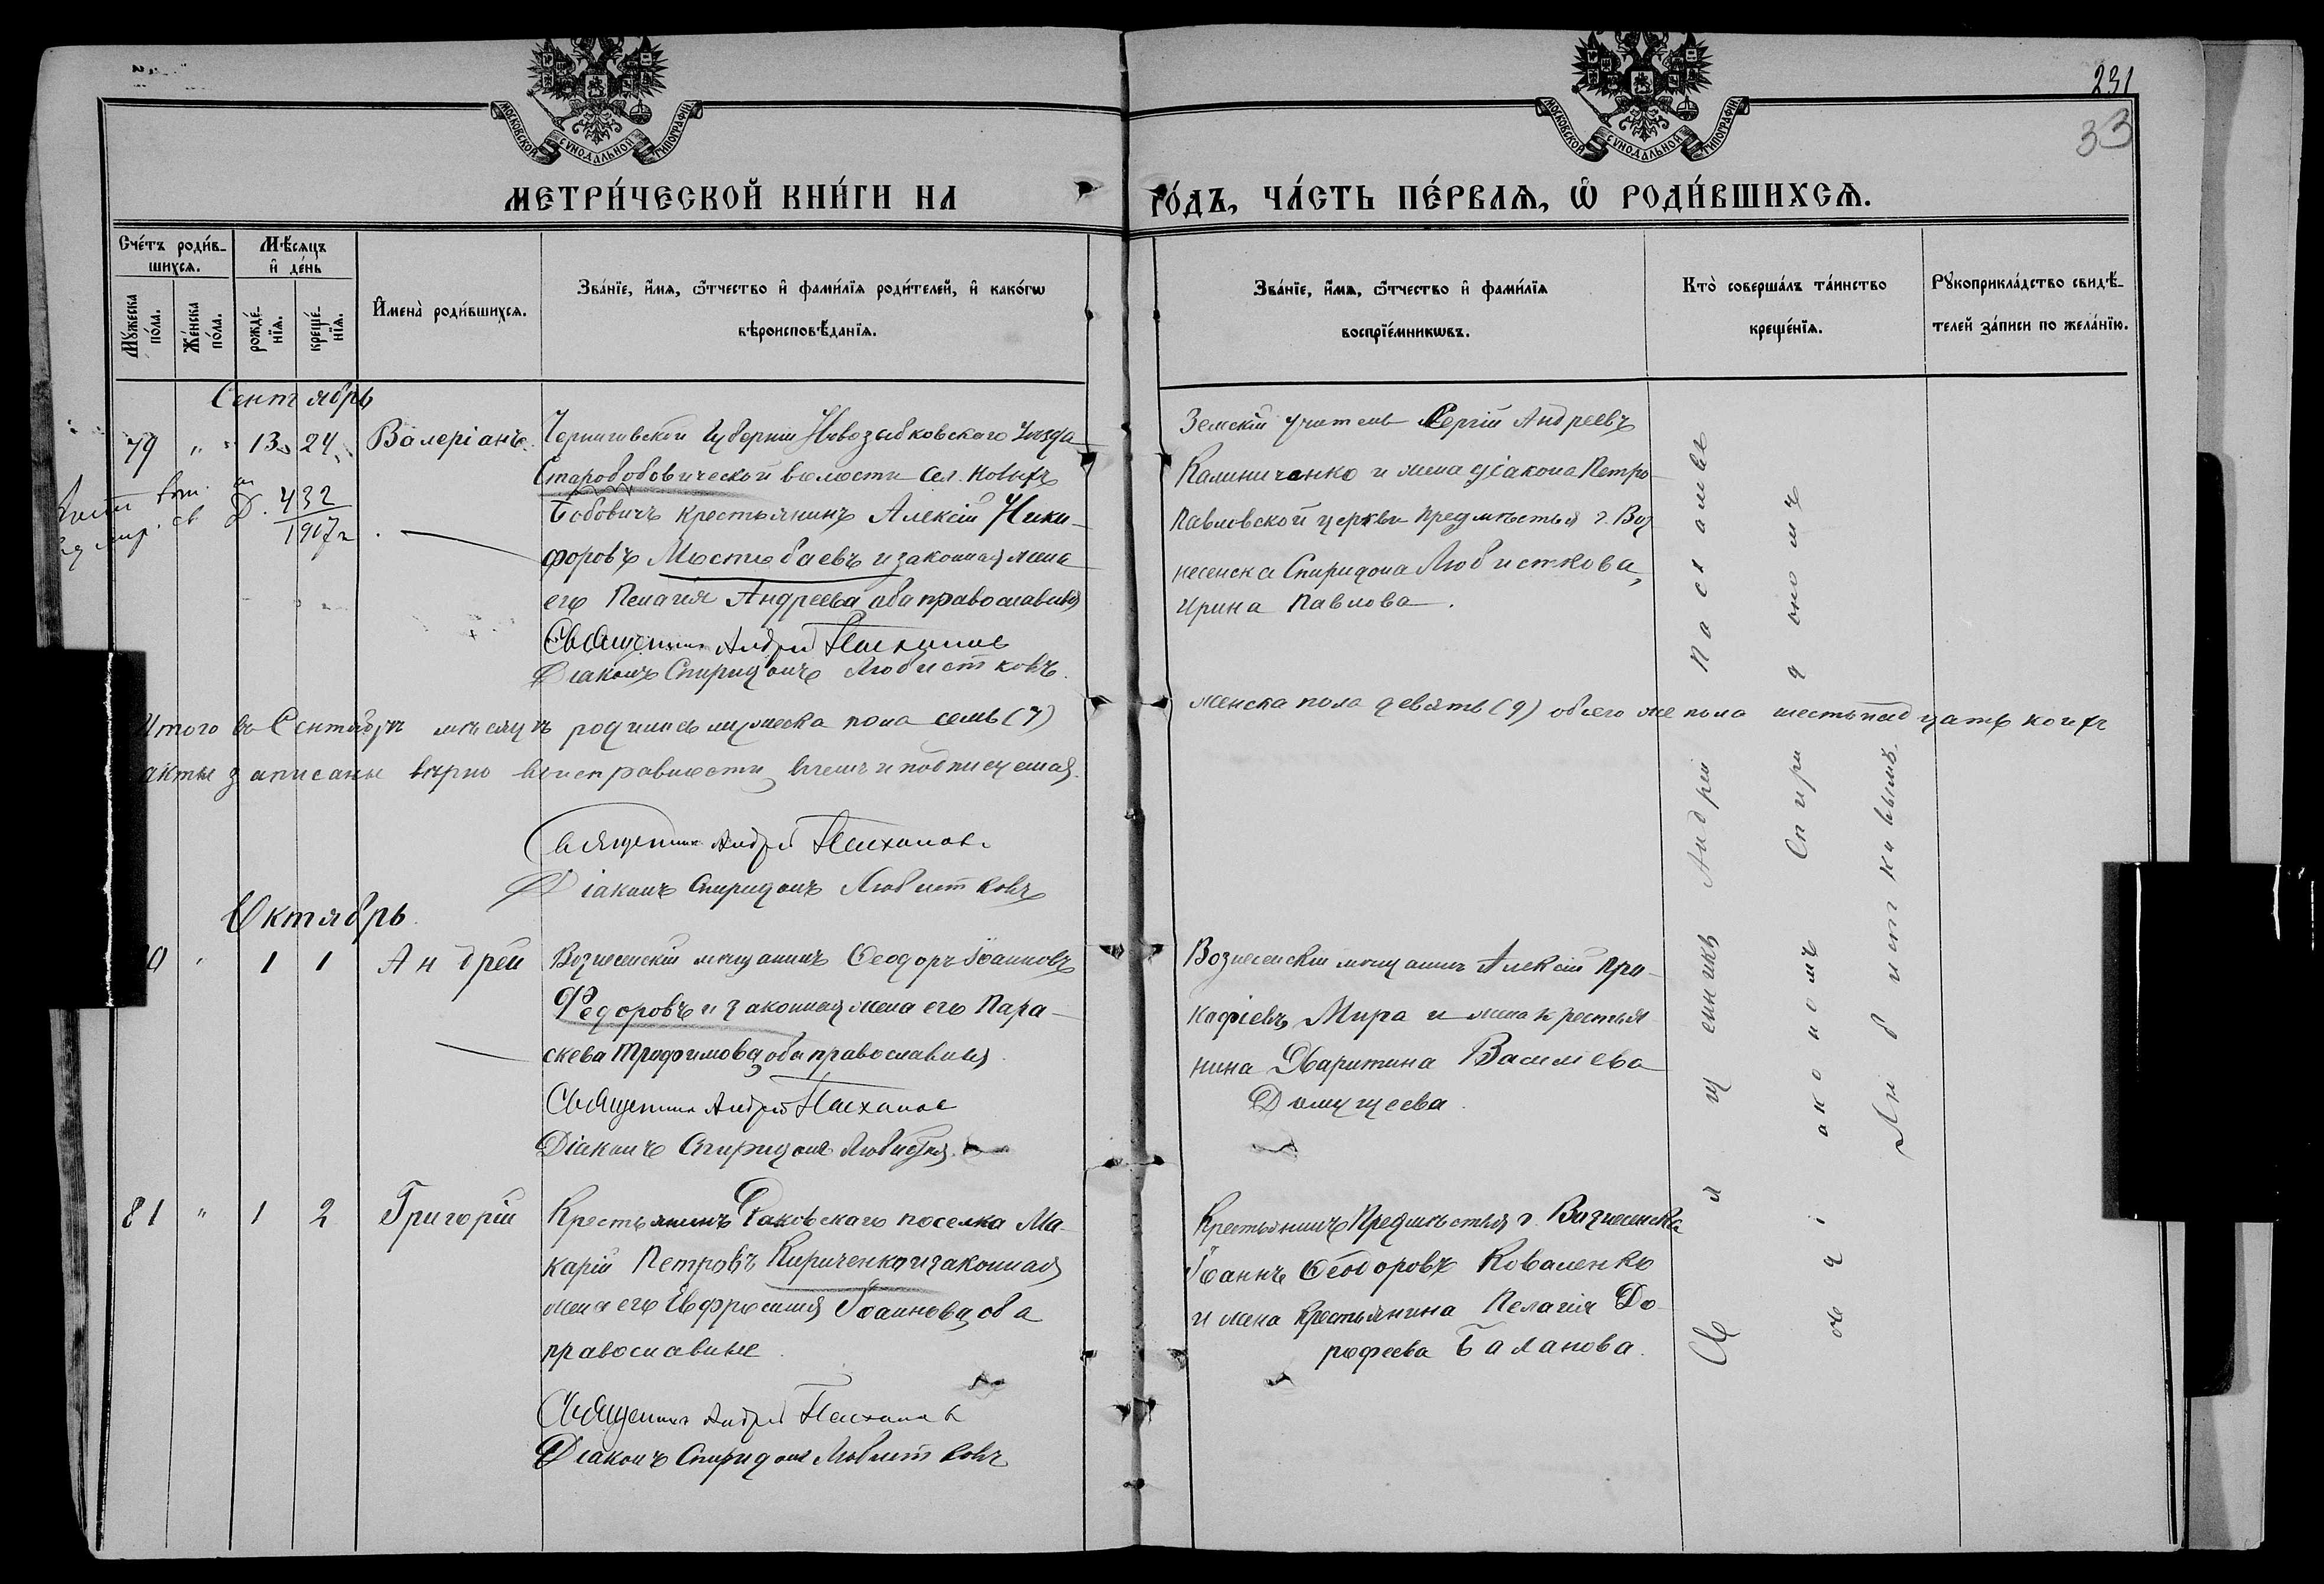 231
33
МОСКОВСКОЙ СѴНОДАЛЬНОЙ ТИПОГРАФІИ
МОСКОВСКОЙ СѴНОДАЛЬНОЙ ТИПОГРАФІИ
МЕТРИ́ЧЕСКОЙ КНИ́ГИ НА
ГО́ДЪ, ЧА́СТЬ ПЕ́РВАѦ, Ѡ҆ РОДИ́ВШИХСѦ.
Сче́тъ роди́в-
шихсѧ.
Мѣ́сѧцъ
и҆ де́нь
Мꙋ́жеска по́ла.
Же́нска по́ла.
рожде́-
нїѧ.
креще́-
нїѧ.
И҆мена̀ роди́вшихсѧ.
Зва́нїе, и҆́мѧ, ѻ҆́тчество и҆ фами́лїѧ роди́телей, и҆ како́гѡ
вѣроисповѣ́данїѧ.
Зва́нїе, и҆́мѧ, ѻ҆́тчество и҆ фами́лїѧ
воспрїе́мникѡвъ.
Кто̀ соверша́лъ та́инство
креще́нїѧ.
Рꙋкоприкла́дство свидѣ́-
телей за́писи по жела́нїю.
Сентябрь
79 " 13 24 Валеріанъ
Черниговской губерніи Новозыбковскаго уѣзда
Старобобовической волости сел. Новыхъ
Бобовичъ крестьянинъ Алексій Ники-
форовъ и законная жена
его Пелагія Андреева, оба православные
Священникъ Андрей
Діаконъ Спиридонъ Любистковъ.
432
1907 г.
Земскій учитель Сергій Андреевъ
Калиниченко и жена діакона Петро-
Павловской церкви предмѣстья г. Воз
несенска Спиридона Любисткова,
Ирина Павлова.
Итого въ Сентябрѣ мѣсяцѣ родилось мужеска пола семь (7)
женска пола девять (9) обоего же пола шестьнадцать коихъ
акты записаны вѣрно въ исправности въ чемъ и подписуемся.
Священникъ Андрей
Діаконъ Спиридонъ Любистковъ
Октябрь
" 1 1 Андрей
Вознесенскій мѣщанинъ Ѳеодоръ Іоанновъ
Федоровъ и законная жена его Пара-
скева Трофимова, оба православные.
Священникъ Андрей
Діаконъ Спиридонъ Любистковъ
Вознесенскій мѣщанинъ Алексій Про-
кофіевъ Мира и жена крестья
нина Харитина Василіева
81 " 1 2 Григорій
Крестьянинъ Раковскаго поселка Ма-
карій Петровъ Кириченко и законная
жена его Евфросинія Іоаннова, оба
православные.
Священникъ Андрей
Діаконъ Спиридонъ Любистковъ
Крестьянинъ Предмѣстья г. Вознесенска
Іоаннъ Ѳеодоровъ Коваленко
и жена крестьянина Пелагія До-
рофеева Баланова.
Священникъ Андрей
съ діакономъ Спиридономъ
Любистковымъ.